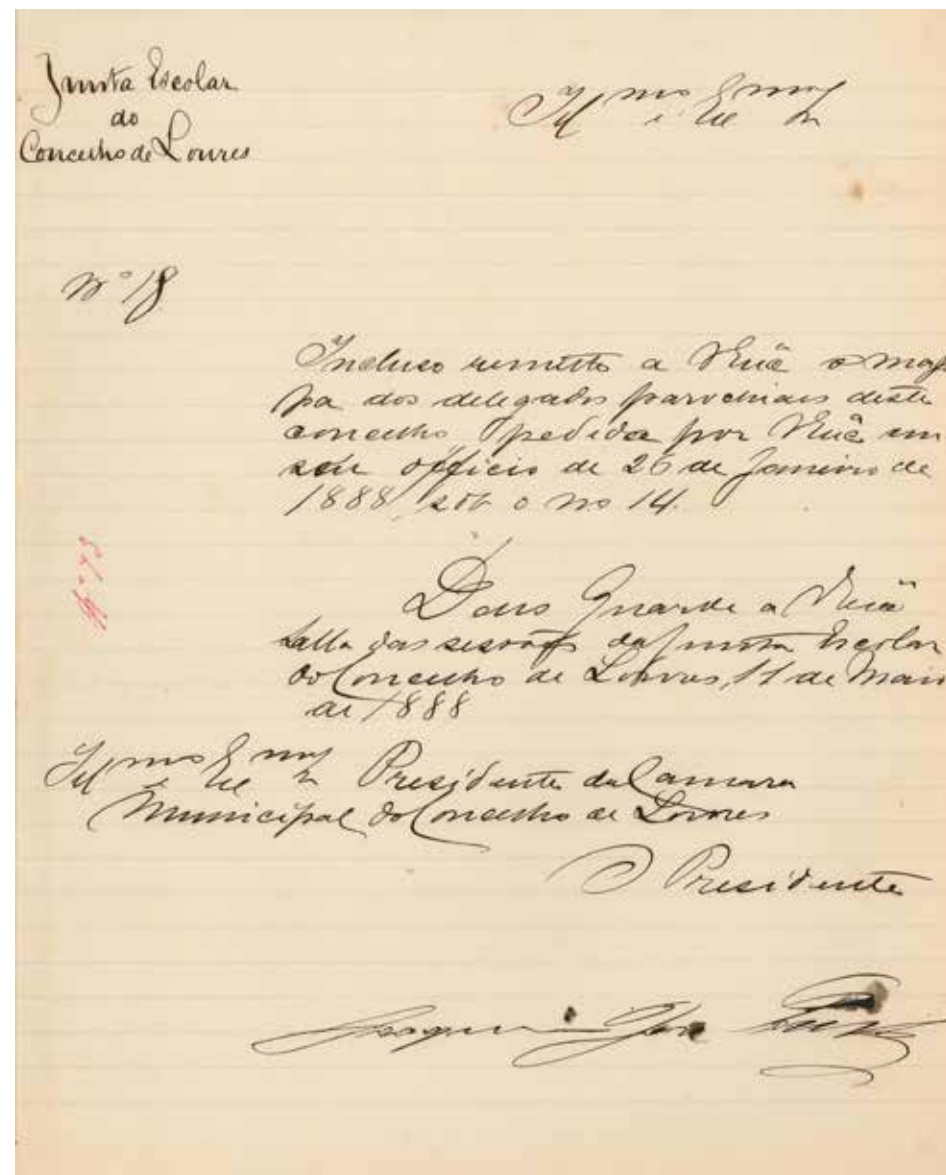 Junta Escolar
do
Concelho de Loures
Ill mo e Exc mo Snr
Nº 18
Incluso remetto a V Exª o map
pa dos delegados parochiais deste
concelho pedida por V Exª em
seu officio de 26 de Janeiro de
1888 sob o no 14.
Deus Guarde a V Exª
Salla das sessões da Junta Escolar
do Concelho de Loures, 11 de Maio
de 1888
Ill mo e Exc mo Snr Presidente da Camara
Municipal do Concelho de Loures
O Presidente
Joaquim José